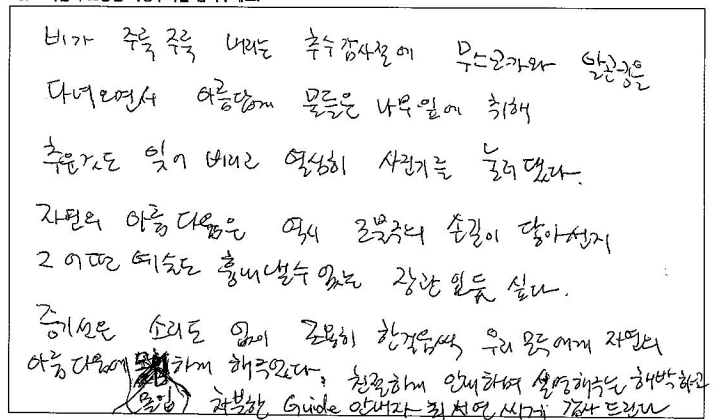 비가 주룩 주룩 내리는 추수감사절에 무스코카와 알곤퀸을
다녀오면서 아름답게 물들은 나무잎에 취해
추운것도 잊어 버리고 열심히 사진기를 눌러 댔다.
자연의 아름다움은 역시 조물주의 손길이 닿아선지
그 어떤 예술도 흉내낼수 없는 장관 인듯 싶다.
증기선은 소리도 없이 조용히 한걸음씩 우리 모두에게 자연의
아름다움에 하게 해주었다. 친절하게 안내하며 설명해주는 해박하고
(몰입) 차분한 Guide 안내자 최 연 씨께 감사 드린다